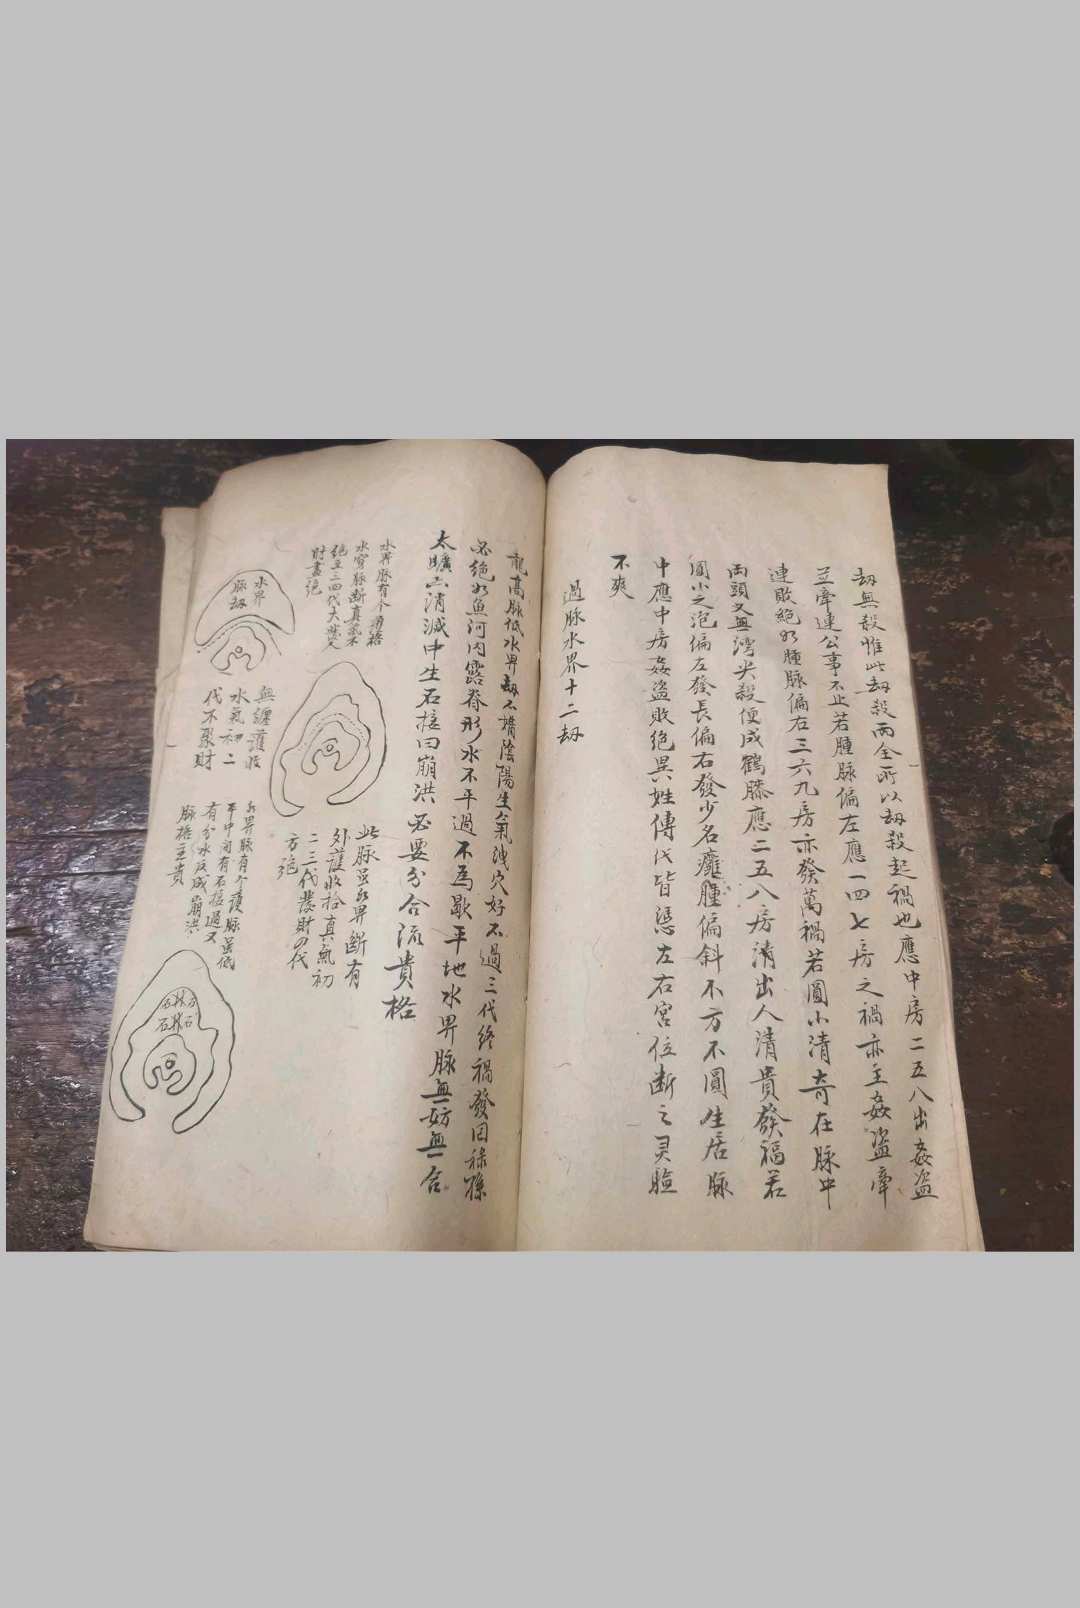 劫無殺惟此劫殺兩全所以劫殺起禍也應中房二五八出姦盜
並牽連公事不止若腫脉偏左應一四七房之禍亦主姦盜牽
連敗絕如腫脉偏右三六九房亦發萬禍若圓小清奇在脉中
両頭又無灣尖殺便成鶴膝應二五八房清出人清貴發福若
圓小之泡偏左發長偏右發少名癰腫偏斜不方不圓生居脉
中應中房姦盜敗絕異姓傳代皆憑左右宮位斷之灵驗
不爽
過脉水界十二劫
龍高脉低水界劫不搆陰陽生氣洩穴好不過三代終禍發因祿孫
必絕如魚河内露脊形水不平過不為歇平地水界脉無妨無合
太曠亦消滅中生石挖曰崩洪必要分合流貴格
水界脉有个
水穿脉断真氣不
絕主三四代大
財畫絕
水界
脉劫
無纏護收
水氣初二
代不聚財
此脉虽水界断有
外護收拾真氣初
二三代發財四代
方絕
水界脉有个護脉虽低
平中间有石挖過又
有分水反成崩洪
脉格主貴